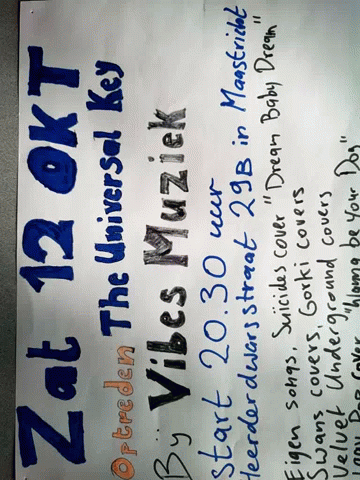 Zat 12 OKT
Optreden The Universal Key
By Vibes Muziek
Start 20.30 uur
Heerderdwarsstraat 29B in Maastricht
Eigen songs, Suïcides cover "Dream Baby Dream"
Swans covers, Gorki covers
Velvet Underground covers
Iggy Pop cover "Wanna be Your Dog"